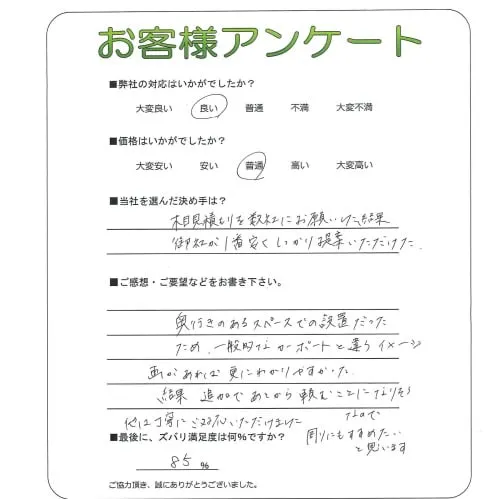 お客様アンケート
■弊社の対応はいかがでしたか？
大変良い 良い 普通 不満 大変不満
■価格はいかがでしたか？
大変安い 安い 普通 高い 大変高い
■当社を選んだ決め手は？
相見積もりを数社にお願いした結果
御社が1番安くしっかり提案いただけた.
■ご感想・ご要望などをお書き下さい。
奥行きのあるスペースでの設置だった
ため、一般的なカーポートと違うイメージ
画があれば更にわかりやすかった.
結果 追加であとから頼むことになりそう
なので
他は丁寧にご対応いただけました
周りにもすすめたい
と思います
■最後に、ズバリ満足度は何％ですか？
85 ％
ご協力頂き、誠にありがとうございました。